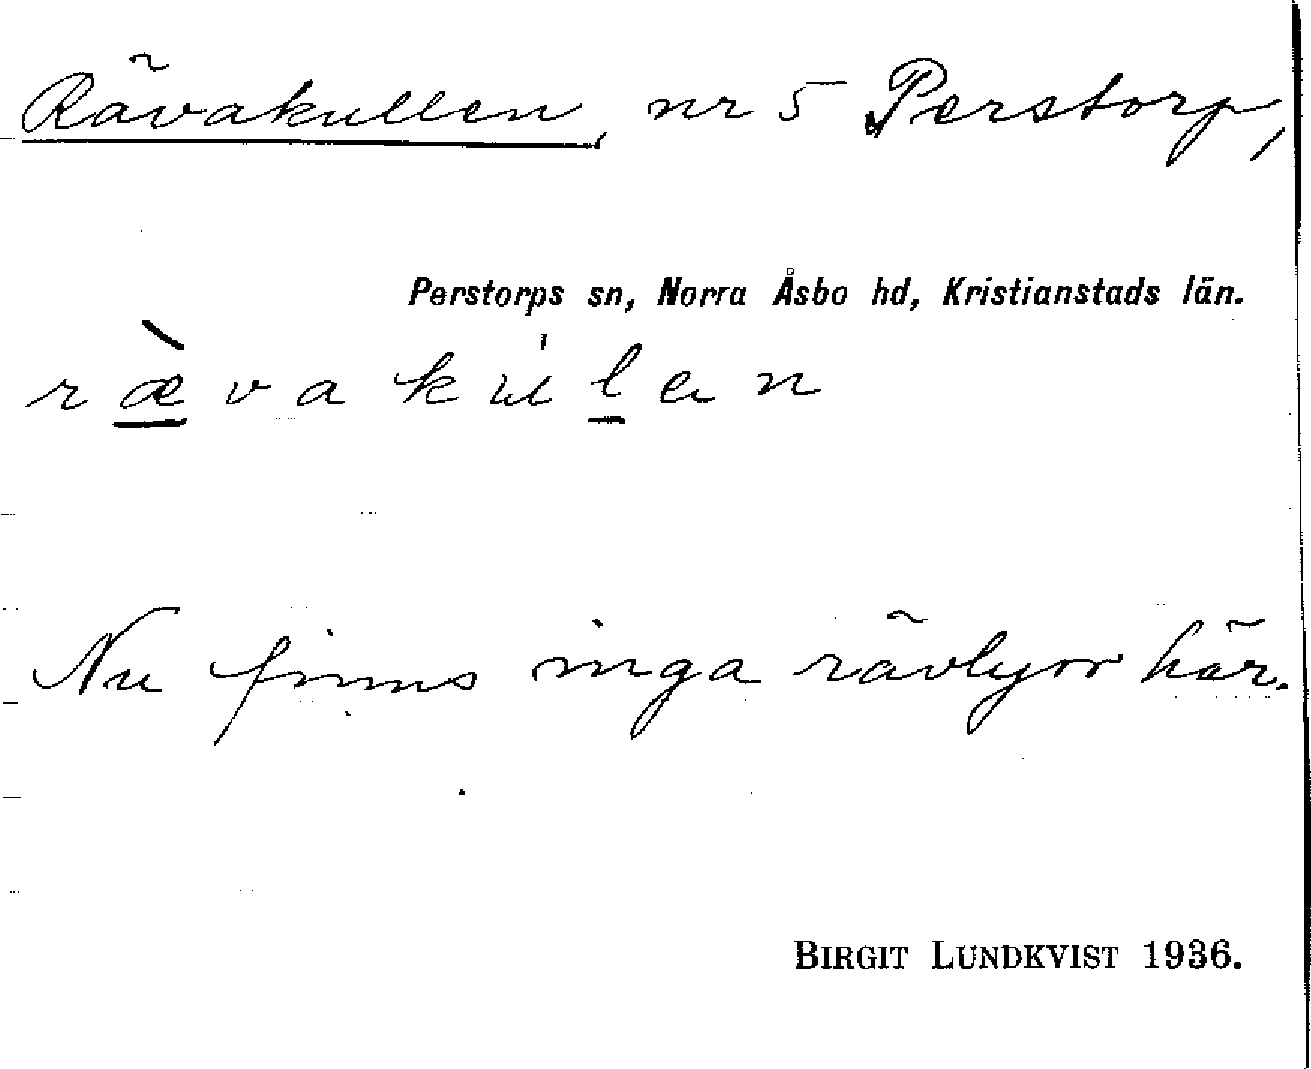 Rävakullen, nr 5 Perstorp,
Perstorps sn, Norra Åsbo hd, Kristianstads län.
ræ̀vakúlen
Nu finns inga rävlyor här.
BIRGIT LUNDKVIST 1936.